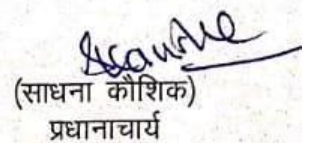 (साधना कौशिक)
प्रधानाचार्य